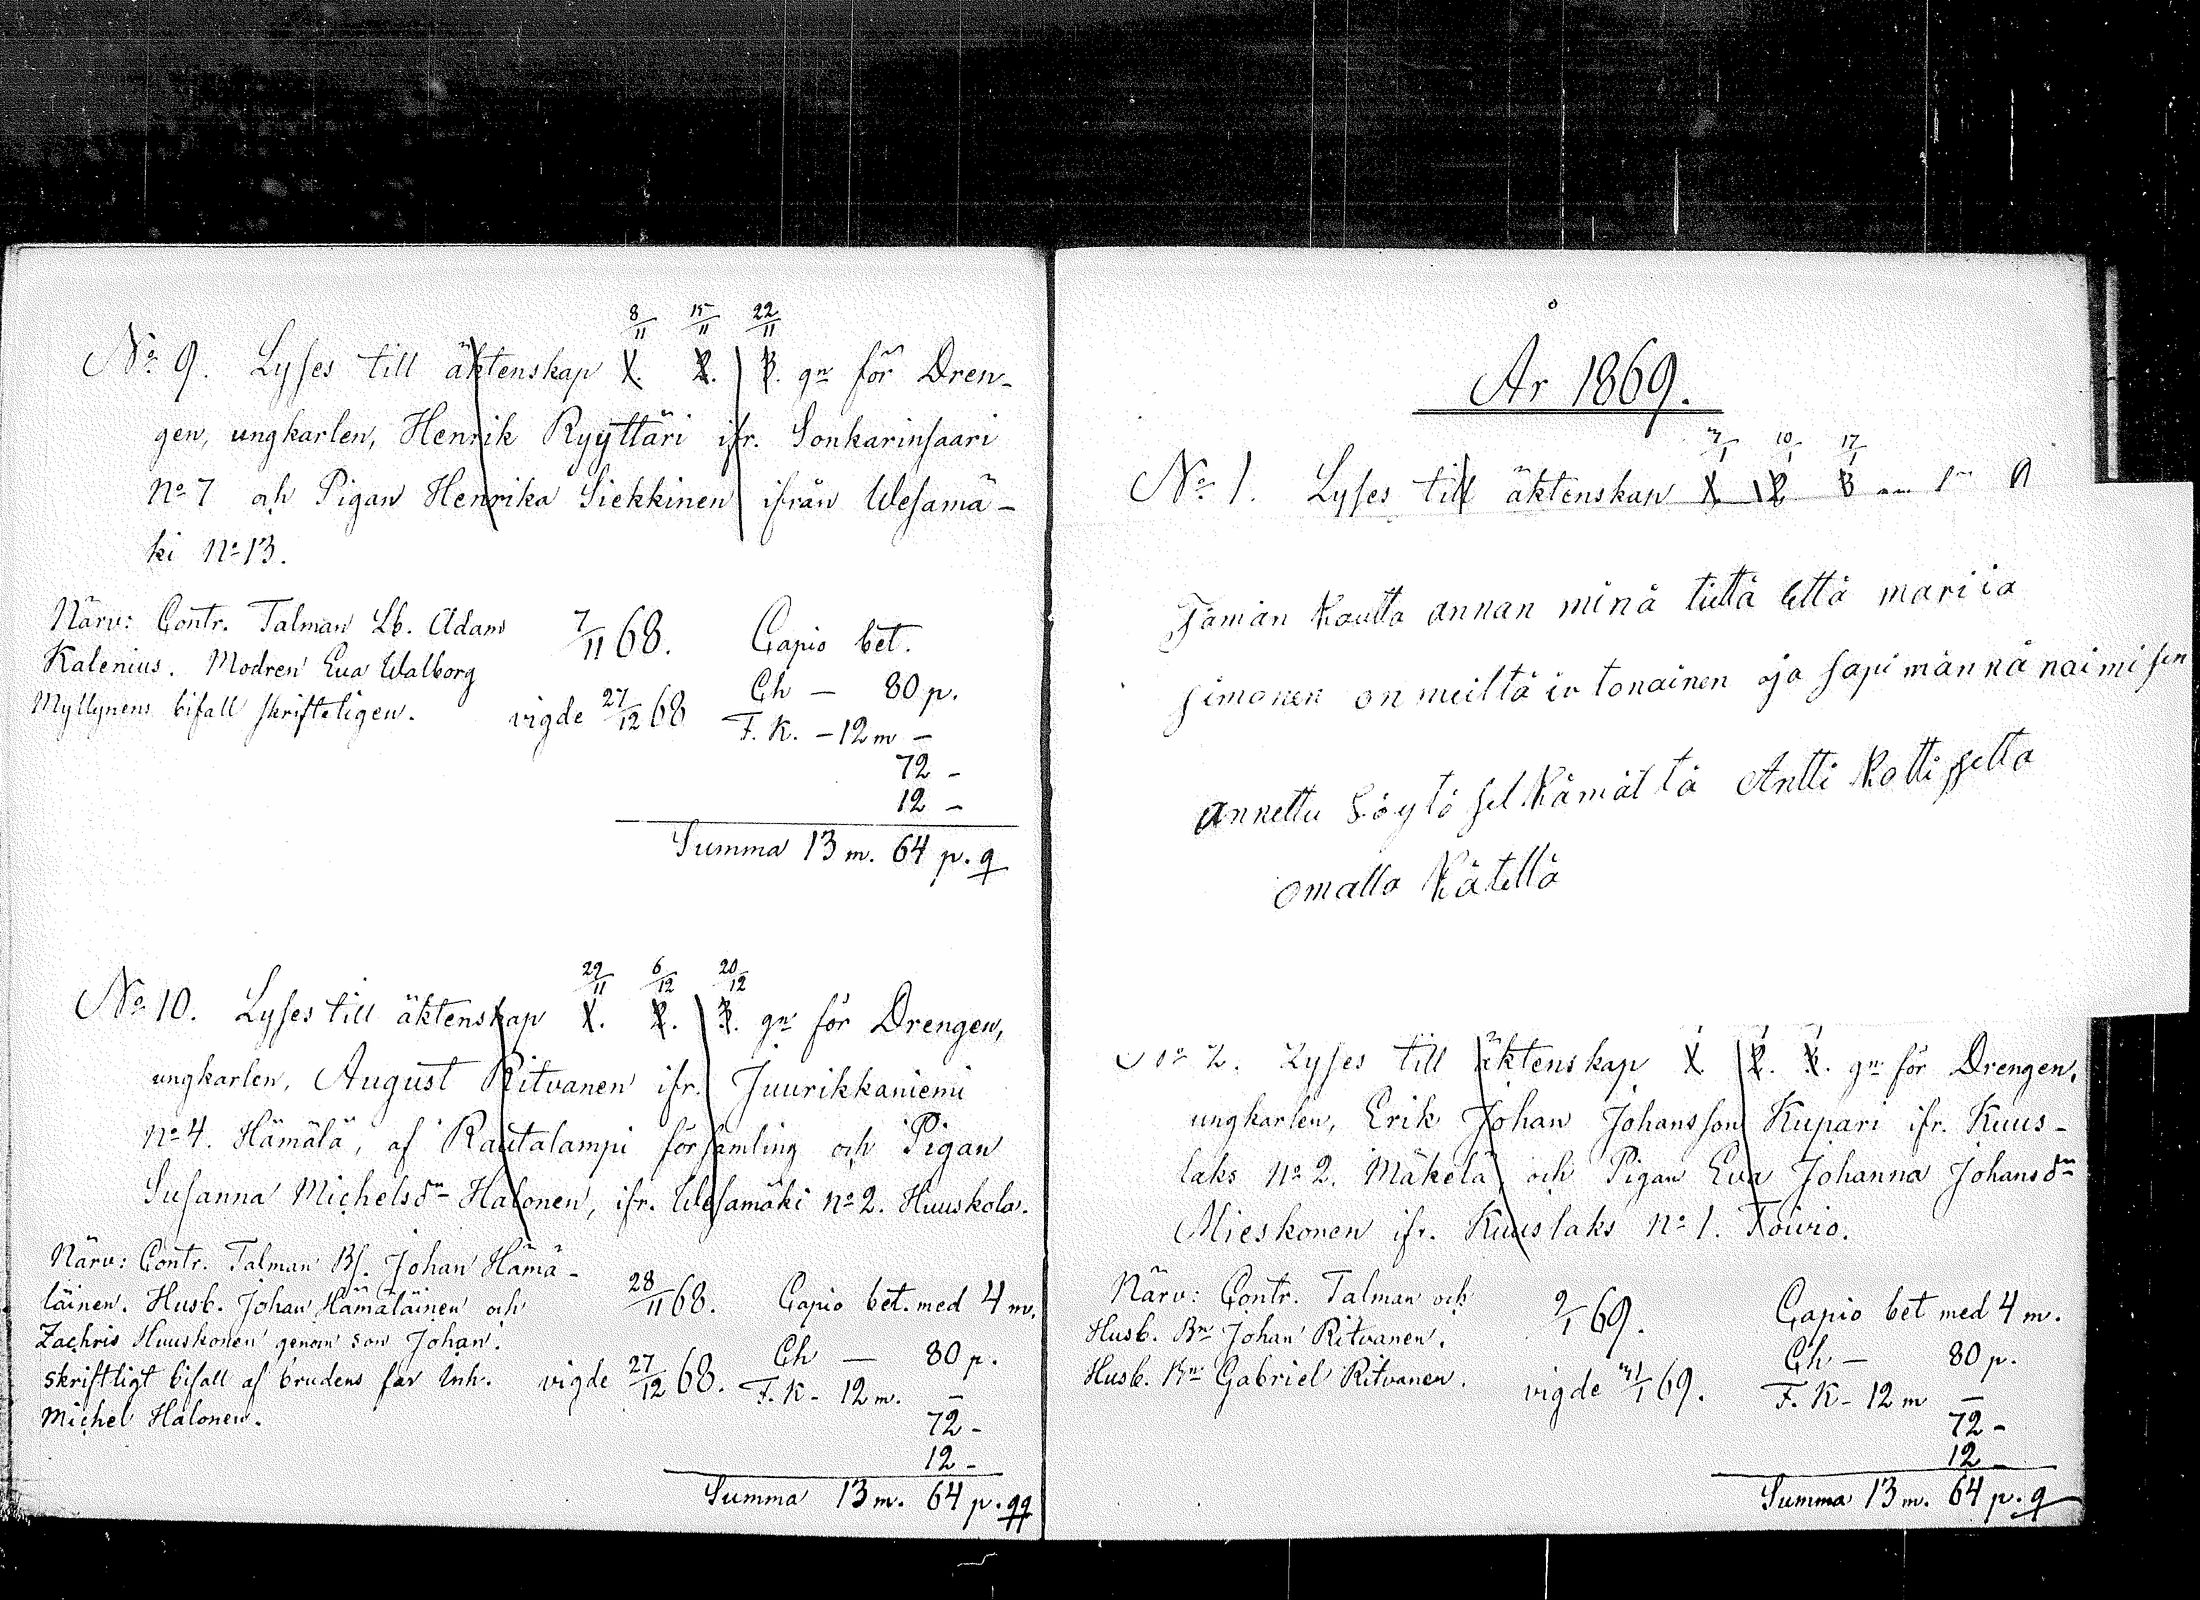 8/11 15/11 22/11
No 9. Lyses till äktenskap 1. 2. 3. gn för Dren-
gen, ungkarlen, Henrik Ryyttäri ifr. Sonkarinsaari
No 7 och Pigan Henrika Siekkinen ifrån Wesamä-
ki No 13.
Närv: Contr. Talman Lb. Adam
Kalenius. Modren Eva Walborg
Myllynens bifall skrifteligen.
7/11 68.
vigde 27/12 68
Capio bet.
Ch — 80 p.
F. K. — 12 m —
72 —
12 —
Summa 13 m. 64 p. q
29/11 6/12 20/12
No 10. Lyses till äktenskap 1. 2. 3. gn för Drengen,
ungkarlen, August Ritvanen ifr. Juurikkaniemi
No 4. Hämälä, af Rautalampi församling och Pigan
Susanna Michelsdn Halonen, ifr. Wesamäki No 2. Huuskola.
Närv: Contr. Talman Bs. Johan Hämä-
läinen. Husb. Johan Hämäläinen och
Zachris Huuskonen genom son Johan.
skriftligt bifall af brudens far Inh.
Michel Halonen.
28/11 68.
vigde 27/12 68.
Capio bet. med 4 m.
Ch — 80 p.
F. K - 12 m. —
72 -
12 -
Summa 13 m. 64 p. qq
År 1869.
10/1 17/1
No 1. Lyses till äktenskap 1. 2 3
Tämän kautta annan minä tiettä että mariia
simonen on meiltä on ja sapi männä naimisen
annettu Löytö selkämältä Antti Kottisselta
omalla kätellä
No 2. Lyses till äktenskap 1 2. 3. gn för Drengen,
ungkarlen, Erik Johan Johansson Kupari ifr. Kuus-
laks No 2. Mäkelä och Pigan Eva Johanna Johansdn
Mieskonen ifr. Kuuslaks No 1. Toivio.
Närv: Contr. Talman och
Husb. Bn Johan Ritvanen.
Husb. Bn Gabriel Ritvanen.
9/1 69.
vigde 31/1 69.
Capio bet med 4 m.
Ch — 80 p.
F. K - 12 m —
72 -
12 -
Summa 13 m. 64 p. q